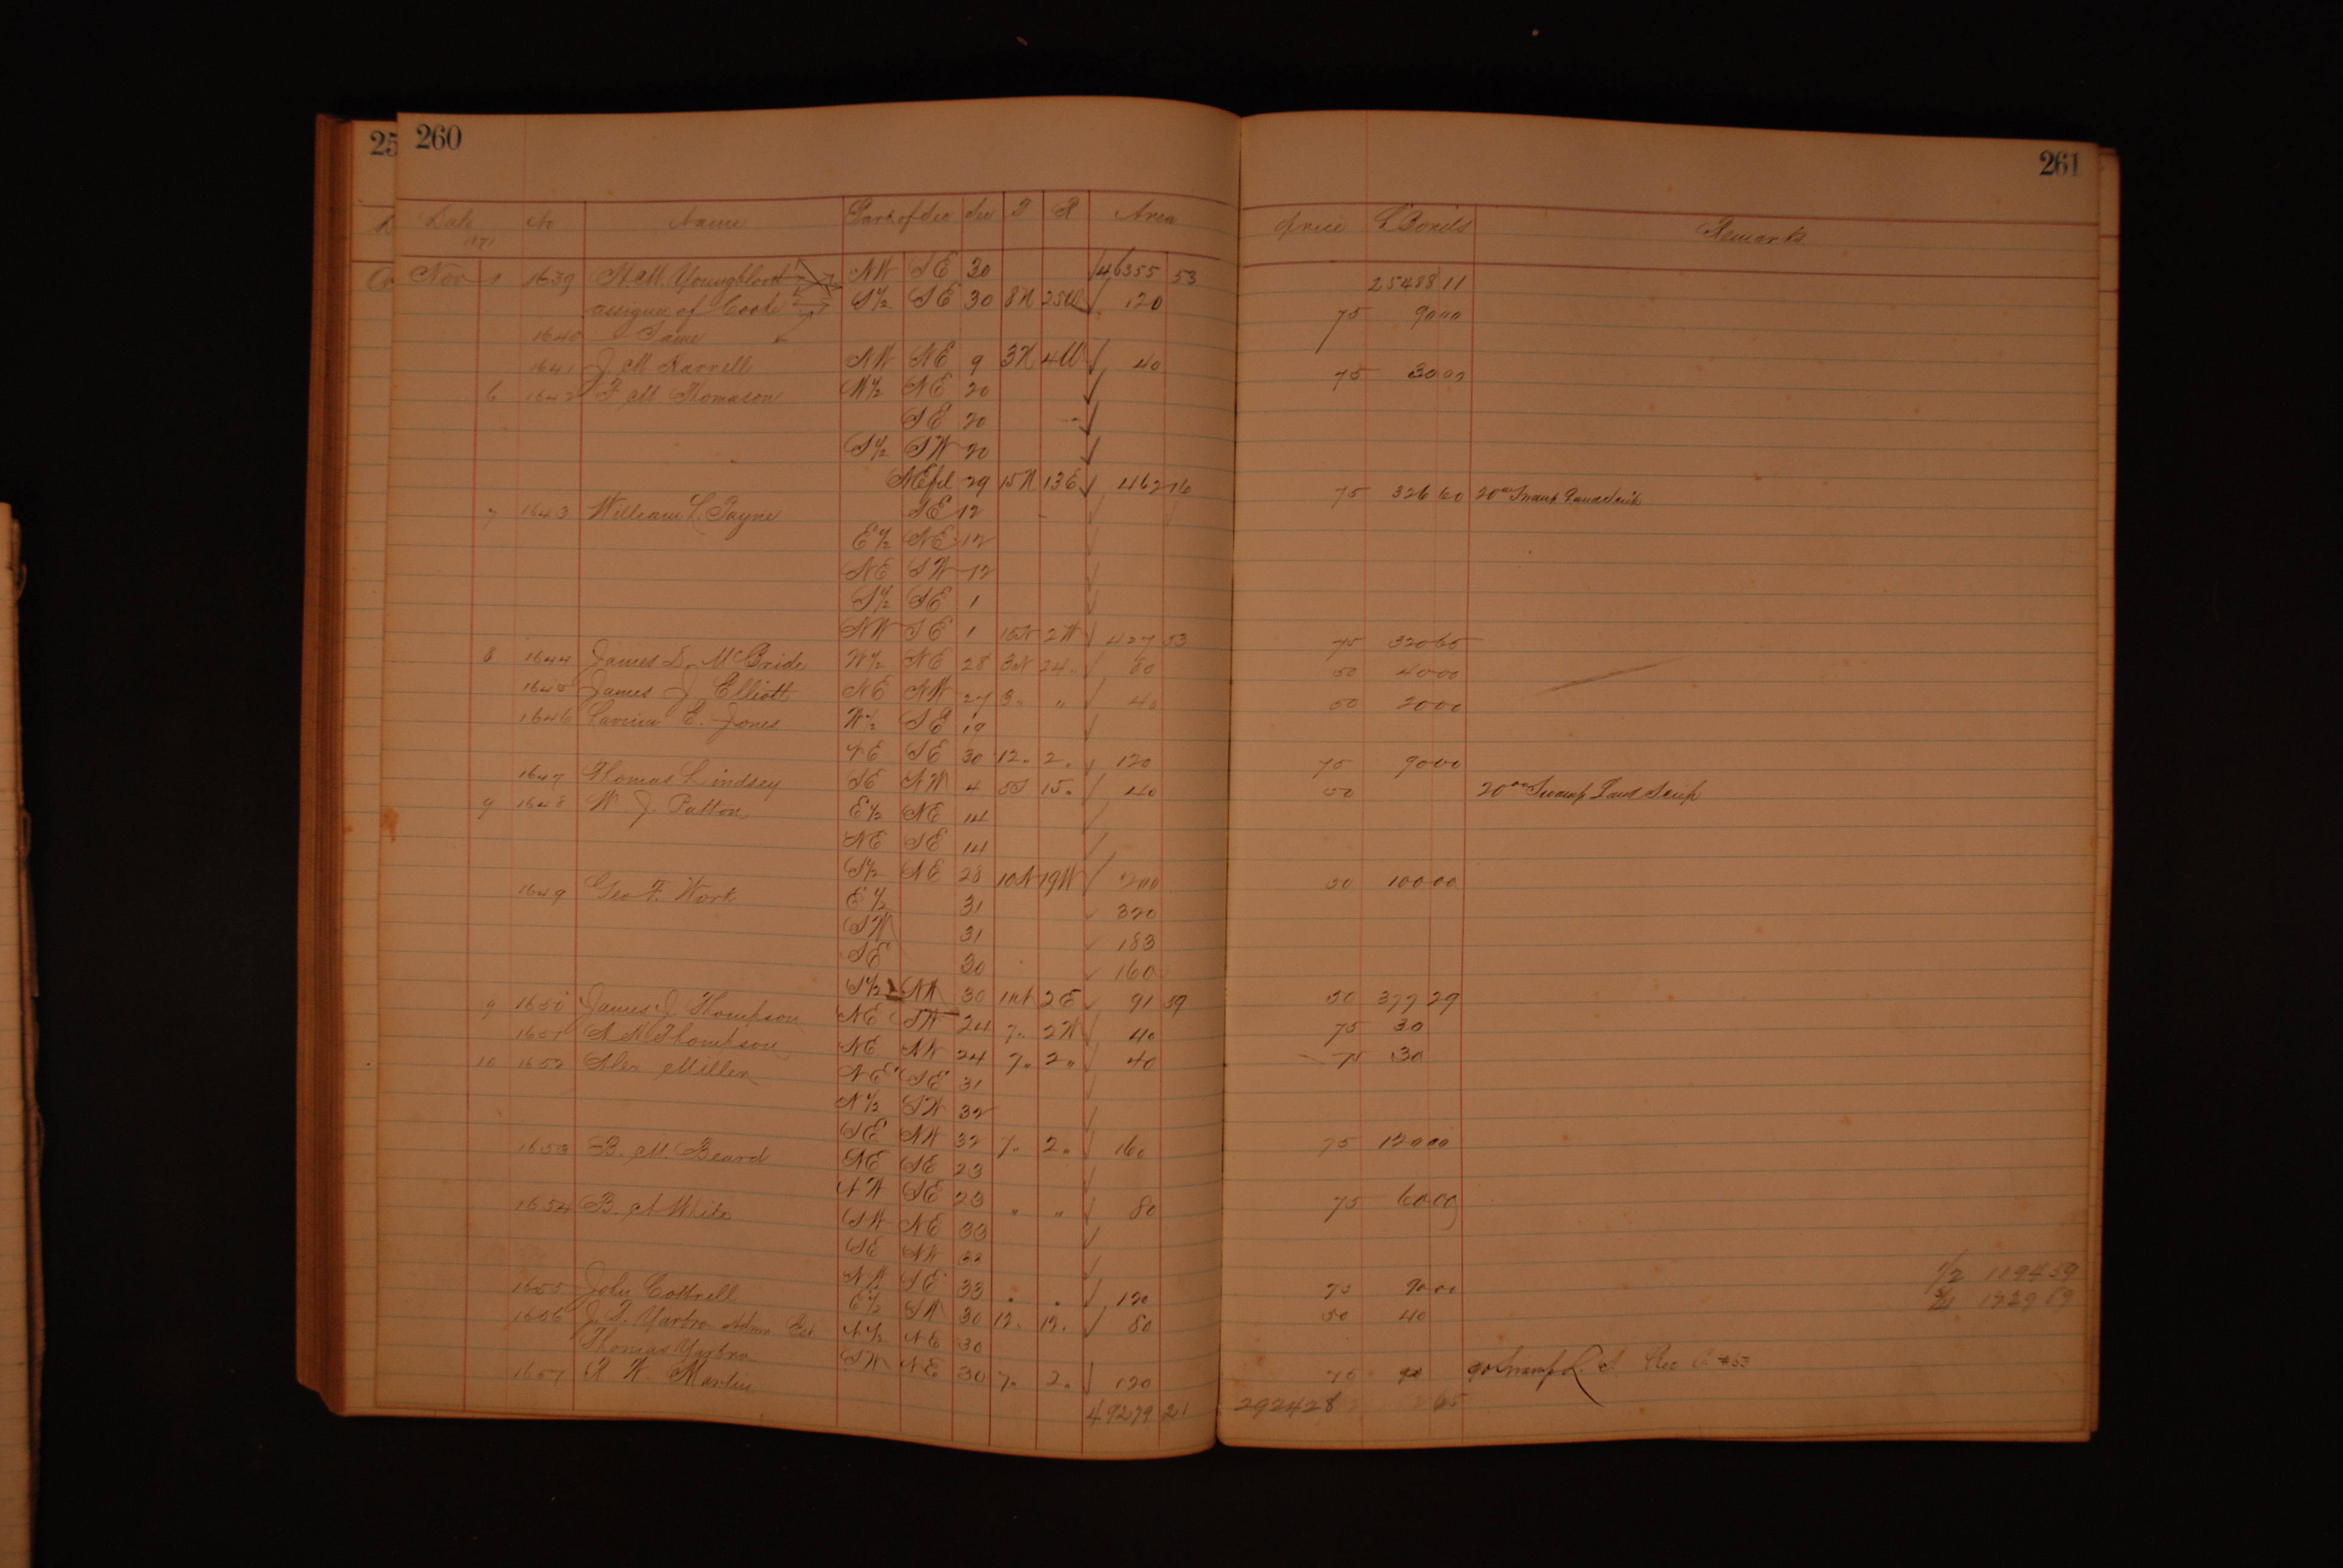 25 260 261
Date No Name Part of Sec Sec T R Area Price Bonds Remarks
1871
Nov 1 1639 Youngblood NW SE 30 46355 53 25488 11
assignee of Cook S½ SE 30 8N 25W 120 75 90 00
1640 Same
1641 J M Harrell NW NE 9 3N 4W 40 75 30 00
6 1642 F M Thomason W½ NE 20
SE 20
S½ SW 20
NE frl 29 15N 13E 462 16 75 326 60 20 00 Swamp Land Scrip
7 1643 William L. Payne SE 12
E½ NE 12
NE SW 12
S½ SE 1
NW SE 1 16N 2W 427 53 75 320 65
8 1644 James D. McBride W½ NE 28 3N 24 " 80 50 40 00
1645 James J Elliott NE NW 27 3 " " 40 50 20 00
1646 E. Jones W½ SE 19
NE SE 30 12 " 2 " 120 75 90 00
1647 Thomas Lindsey SE NW 4 5S 15 " 40 50 20 00 Swamp Land Scrip
9 1648 W. J. Patton E½ NE 14
NE SE 14
S½ NE 23 10N 19W 200 50 100 00
1649 Geo F. Work E½ 31 320
SW 31 183
SE 30 160
S½ NW 30 2E 91 59 50 377 29
9 1650 James J. Thompson NE SW 24 7 " 2W 40 75 30
1651 Thompson NE NW 24 7 " 2 " 40 75 30
10 1652 Alex Miller NE SE 31
N½ SW 32
SE NW 32 7 " 2 " 160 75 120 00
1653 B. M. Beard NE SE 23
NW SE 23 " " 80 75 60 00
1654 B. White SW NE 33
SE NW 33
NW SE 33 " " 120 75 90 00
1655 John Cottrell E½ SW 30 12 " 12 " 80 50 40
1656 Yarbro Admr Est N½ NE 30
Thomas Yarbro SW NE 30 7 " 2 " 120 75 90 90 Swamp L. S.
1657 R W. Martin
49279 21 292428
½ 1194 59
¾ 1229 69